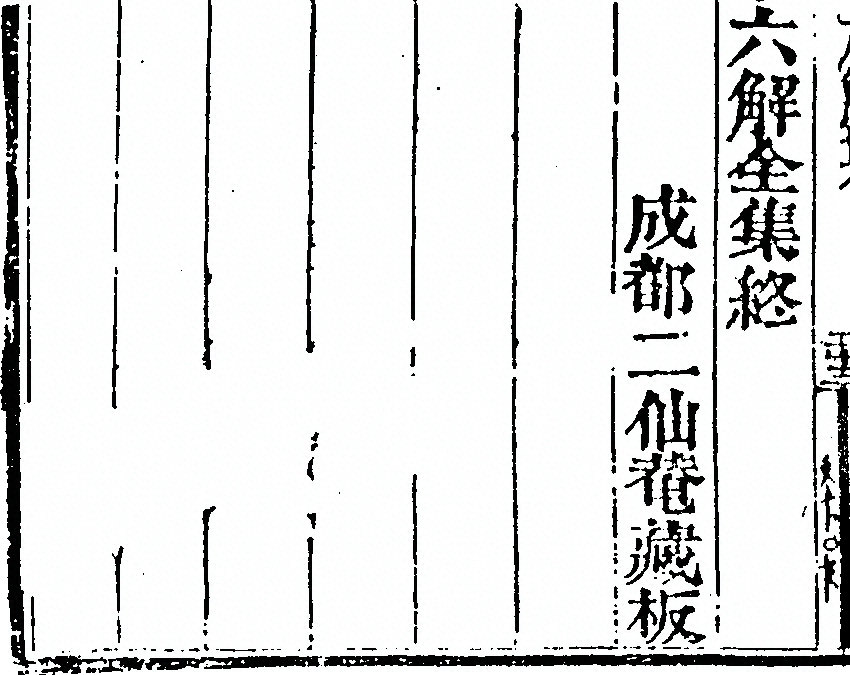 六解全集終
成都二仙菴藏板